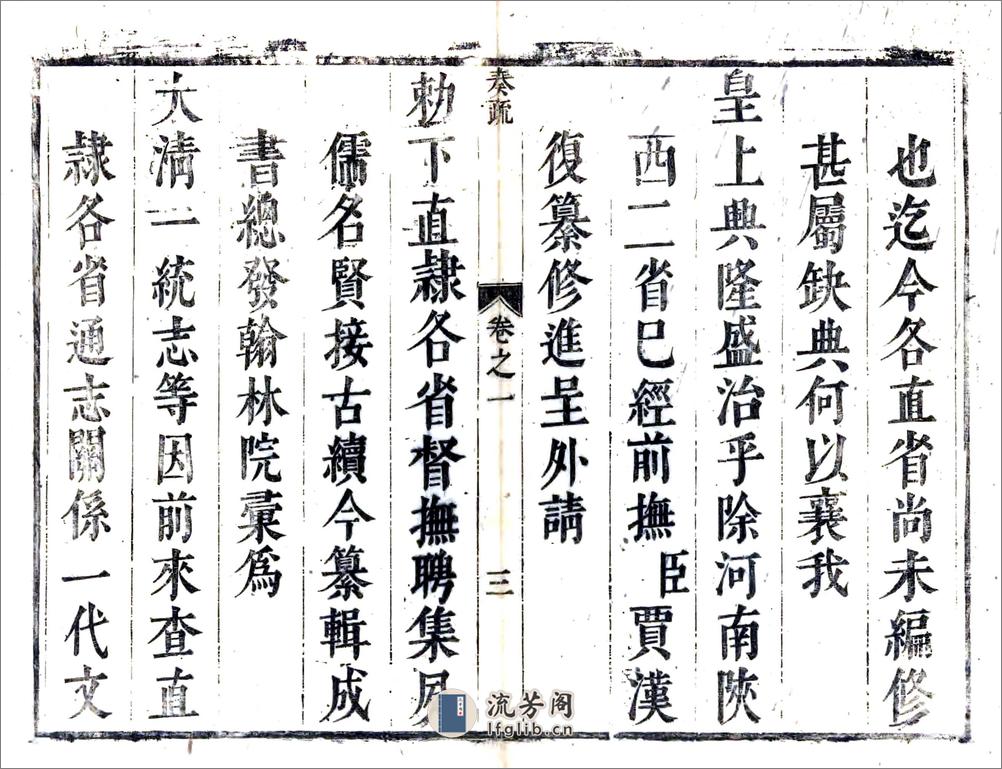 也迄今各直省尚未編修
甚屬缺典何以襄我
皇上典隆盛治乎除河南陝
西二省已經前撫臣賈漢
復纂修進呈外請
奏疏 卷之一 三
勅下直隸各省督撫聘集夙
儒名賢接古續今纂輯成
書總發翰林院彙爲
大清一統志等因前來查直
隸各省通志關係一代文
流芳阁
lfglib.cn